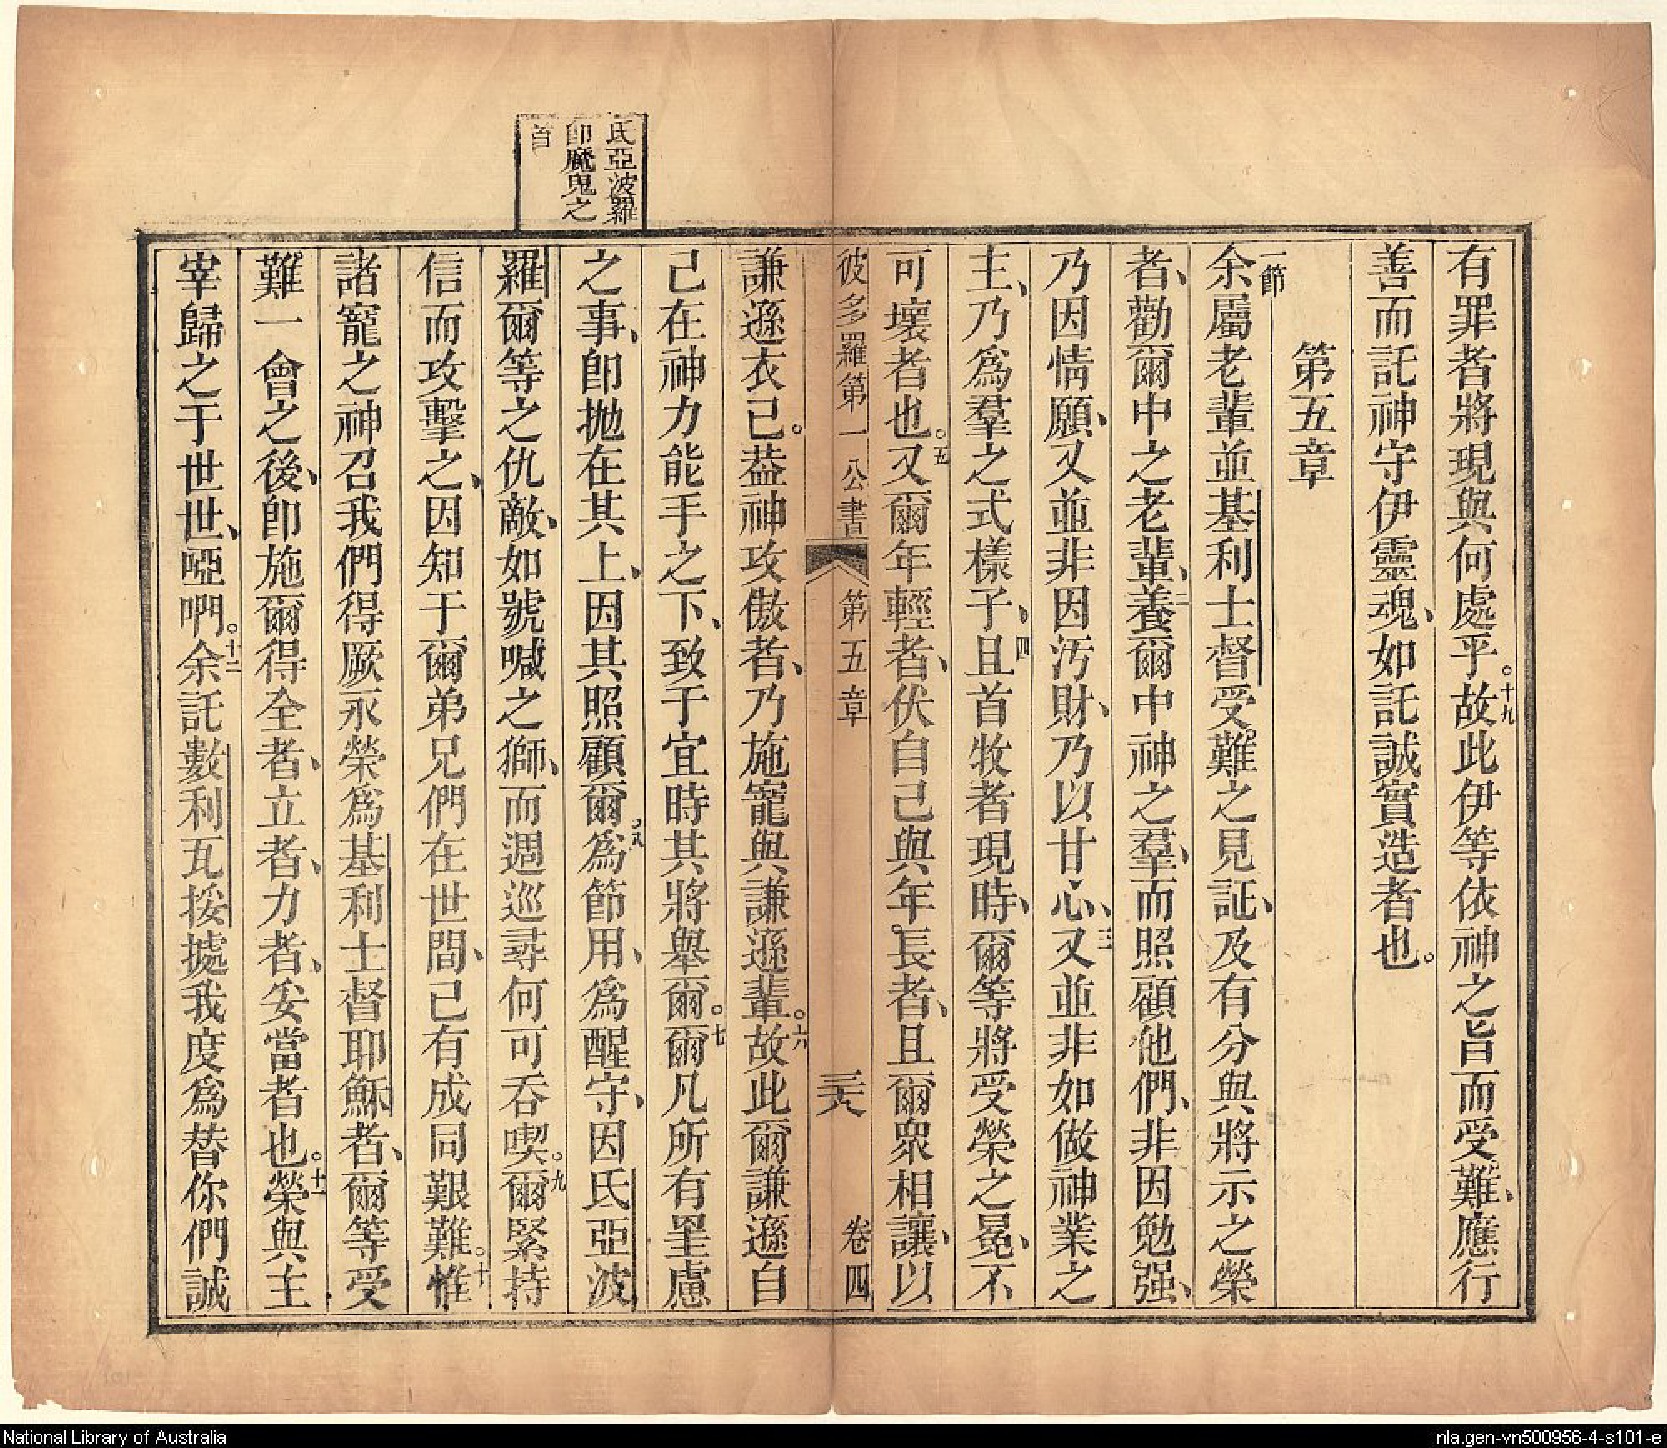 有罪者將現與何處乎。十九故此伊等依神之旨而受難、應行
善而託神守伊靈魂、如託誠實造者也。
第五章
一節余屬老輩並基利士督受難之見証、及有分與將示之榮
者、勸爾中之老輩、二養爾中神之羣、而照顧他們、非因勉强、
乃因情願、又並非因汚財、乃以甘心、三又並非如做神業之
主、乃為羣之式樣子、四且首牧者現時、爾等將受榮之冕、不
可壞者也。五又爾年輕者、伏自己與年。長者、且爾眾相讓、以
彼多羅第一公書 第五章 三十八 卷四
謙遜衣己。葢神攻傲者、乃施寵與謙遜輩。六故此爾謙遜自
己在神力能手之下、致于宜時其將舉爾。七爾凡所有罣慮
之事、卽拋在其上、因其照顧爾。八為節用、為醒守、因氐亞波
羅爾等之仇敵、如號喊之獅、而週巡尋何可吞喫。九爾緊持
信而攻擊之、因知于爾弟兄們在世間、已有成同艱難。十惟
諸寵之神召我們得厥永榮為基利士督耶穌者、爾等受
難一會之後、卽施爾得全者、立者、力者、妥當者也。十一榮與主
宰歸之于世世、啞啊。十二余託數利瓦挼㨿我度為替你們誠
氐亞波羅
卽魔鬼之
首
National Library of Australia
nla.gen-vn500956-4-s101-e